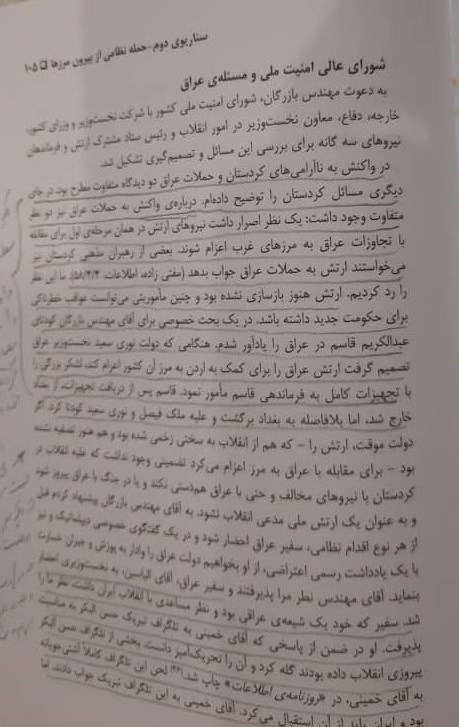 سناریوی دوم-حمله نظامی از بیرون مرزها ۱۰۵
شورای عالی امنیت ملی و مسئله‌ی عراق
به دعوت مهندس بازرگان، شورای امنیت ملی کشور با شرکت نخست‌وزیر و وزرای کشور،
خارجه، دفاع، معاون نخست‌وزیر در امور انقلاب و رئیس ستاد مشترک ارتش و فرماندهان
نیروهای سه گانه برای بررسی این مسائل و تصمیم‌گیری تشکیل شد.
در واکنش به ناآرامی‌های کردستان و حملات عراق دو دیدگاه متفاوت مطرح بود. در جای
دیگری مسائل کردستان را توضیح داده‌ام. درباره‌ی واکنش به حملات عراق نیز دو نظر
متفاوت وجود داشت: یک نظر اصرار داشت نیروهای ارتش در همان مرحله‌ی اول برای مقابله
با تجاوزات عراق به مرزهای غرب اعزام شوند. بعضی از رهبران مذهبی کردستان نیز
می‌خواستند ارتش به حملات عراق جواب بدهد (مفتی زاده، اطلاعات، ۵۸/۴/۴). ما این نظر
را رد کردیم. ارتش هنوز بازسازی نشده بود و چنین مأموریتی می‌توانست عواقب خطرناکی
برای حکومت جدید داشته باشد. در یک بحث خصوصی برای آقای مهندس بازرگان کودتای
عبدالکریم قاسم در عراق را یادآور شدم. هنگامی که دولت نوری سعید نخست‌وزیر عراق
تصمیم گرفت ارتش عراق را برای کمک به اردن به مرز آن کشور اعزام کند، لشکر بزرگی را
با تجهیزات کامل به فرماندهی قاسم مأمور نمود. قاسم پس از دریافت تجهیزات، از بغداد
خارج شد، اما بلافاصله به بغداد برگشت و علیه ملک فیصل و نوری سعید کودتا کرد. اگر
دولت موقت، ارتش را - که هم از انقلاب به سختی زخمی شده بود و هم هنوز تصفیه نشده
بود - برای مقابله با عراق به مرز اعزام می‌کرد تضمینی وجود نداشت که علیه انقلاب در
کردستان با نیروهای مخالف و حتی با عراق هم‌دستی نکند و یا در جنگ با عراق پیروز شود
و به عنوان یک ارتش ملی مدعی انقلاب نشود. به آقای مهندس بازرگان پیشنهاد کردم قبل
از هر نوع اقدام نظامی، سفیر عراق احضار شود و در یک گفتگوی خصوصی دیپلماتیک و نیز
با یک یادداشت رسمی اعتراضی، از او بخواهیم دولت عراق را وادار به پوزش و جبران خسارت
بنماید. آقای مهندس نظر مرا پذیرفتند و سفیر عراق، آقای الیاسین، به نخست‌وزیری احضار
شد. سفیر که خود یک شیعه‌ی عراقی بود و نظر مساعدی با انقلاب ایران داشت، نظر ما را
پذیرفت. او در ضمن از پاسخی که آقای خمینی به تلگراف تبریک حسن البکر به مناسبت
پیروزی انقلاب داده بودند گله کرد و آن را تحریک‌آمیز دانست. بخشی از تلگراف حسن البکر
به آقای خمینی، در «روزنامه‌ی اطلاعات» چاپ شد.(۴۶) لحن این تلگراف کاملاً آشتی‌جویانه
بود و ایران باید از آن استقبال می‌کرد. آقای خمینی به این تلگراف تبریک جواب دادند. اما